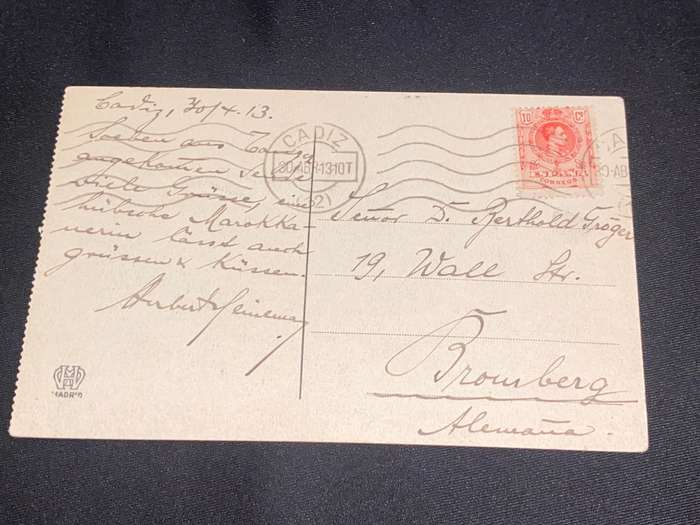 Cadiz, 30/4.13.
Soeben aus Tanger
angekommen sende
viele Grüsse, eine
hübsche Marokka-
nerin lässt auch
grüssen & küssen.
CADIZ
30·ABR·13·10T
10 Cs
ESPAÑA
CORREOS
30·AB
Señor D. Berthold Tröger
19, Wall Str.
Bromberg
Alemaña.
MADRID